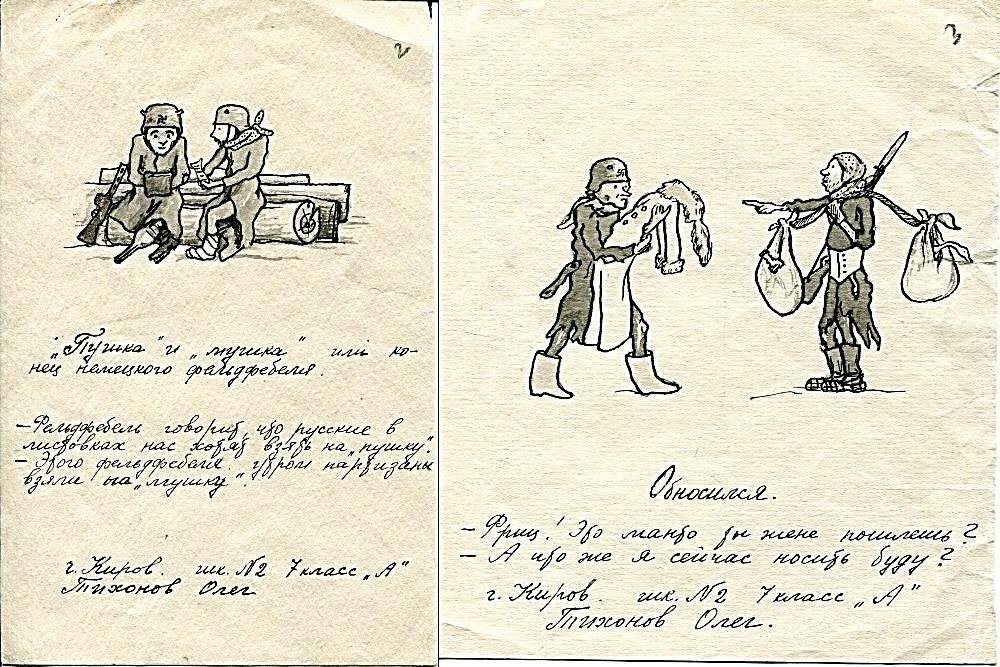 2
„Пушка“ и „мушка“ или ко-
нец немецкого фельдфебеля.
– Фельдфебель говорит, что русские в
листовках нас хотят взять на „пушку“.
– Этого фельдфебеля утром партизаны
взяли на „мушку“.
г. Киров. шк. №2 7 класс „А“
Тихонов Олег
3
Обносился.
– Фриц! Это манто ты жене пошлешь?
– А что же я сейчас носить буду?
г. Киров. шк. №2 7 класс „А“
Тихонов Олег.